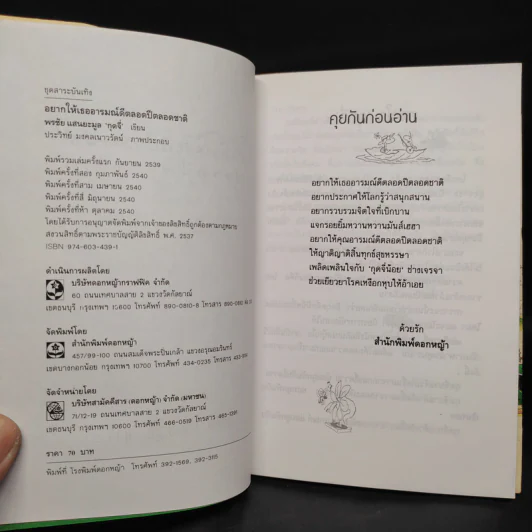 ชุดสาระบันเทิง
อยากให้เธออารมณ์ดีตลอดปีตลอดชาติ
พรชัย แสนยะมูล 'กุดจี่' เขียน
ประวิทย์ มงคลเนาวรัตน์ ภาพประกอบ
พิมพ์รวมเล่มครั้งแรก กันยายน 2539
พิมพ์ครั้งที่สอง กุมภาพันธ์ 2540
พิมพ์ครั้งที่สาม เมษายน 2540
พิมพ์ครั้งที่สี่ มิถุนายน 2540
พิมพ์ครั้งที่ห้า ตุลาคม 2540
โดยได้รับการอนุญาตจัดพิมพ์จากเจ้าของลิขสิทธิ์ถูกต้องตามกฎหมาย
สงวนลิขสิทธิ์ตามพระราชบัญญัติลิขสิทธิ์ พ.ศ. 2537
ISBN 974-603-439-1
ดำเนินการผลิตโดย
บริษัทดอกหญ้ากราฟฟิค จำกัด
60 ถนนเทศบาลสาย 2 แขวงวัดกัลยาณ์
เขตธนบุรี กรุงเทพฯ 10600 โทรศัพท์ โทรสาร
จัดพิมพ์โดย
สำนักพิมพ์ดอกหญ้า
457/99-100 ถนนสมเด็จพระปิ่นเกล้า แขวงอรุณอมรินทร์
เขตบางกอกน้อย กรุงเทพฯ โทรศัพท์ 434-0235 โทรสาร
จัดจำหน่ายโดย
บริษัทสามัคคีสาร (ดอกหญ้า) จำกัด (มหาชน)
71/12-19 ถนนเทศบาลสาย 2 แขวงวัดกัลยาณ์
เขตธนบุรี กรุงเทพฯ 10600 โทรศัพท์ โทรสาร
ราคา 70 บาท
พิมพ์ที่ โรงพิมพ์ดอกหญ้า โทรศัพท์
คุยกันก่อนอ่าน
อยากให้เธออารมณ์ดีตลอดปีตลอดชาติ
อยากประกาศให้โลกรู้ว่าสนุกสนาน
อยากรวบรวมจิตใจที่เบิกบาน
แจกรอยยิ้มหวานหวานมันส์เฮฮา
อยากให้คุณอารมณ์ดีตลอดปีตลอดชาติ
ให้ญาติญาติสิ้นทุกข์สุขหรรษา
เพลิดเพลินใจกับ 'กุดจี่น้อย' ช่างเจรจา
ช่วยเยียวยาโรคเหงือกหุบให้อ้าเอย
ด้วยรัก
สำนักพิมพ์ดอกหญ้า